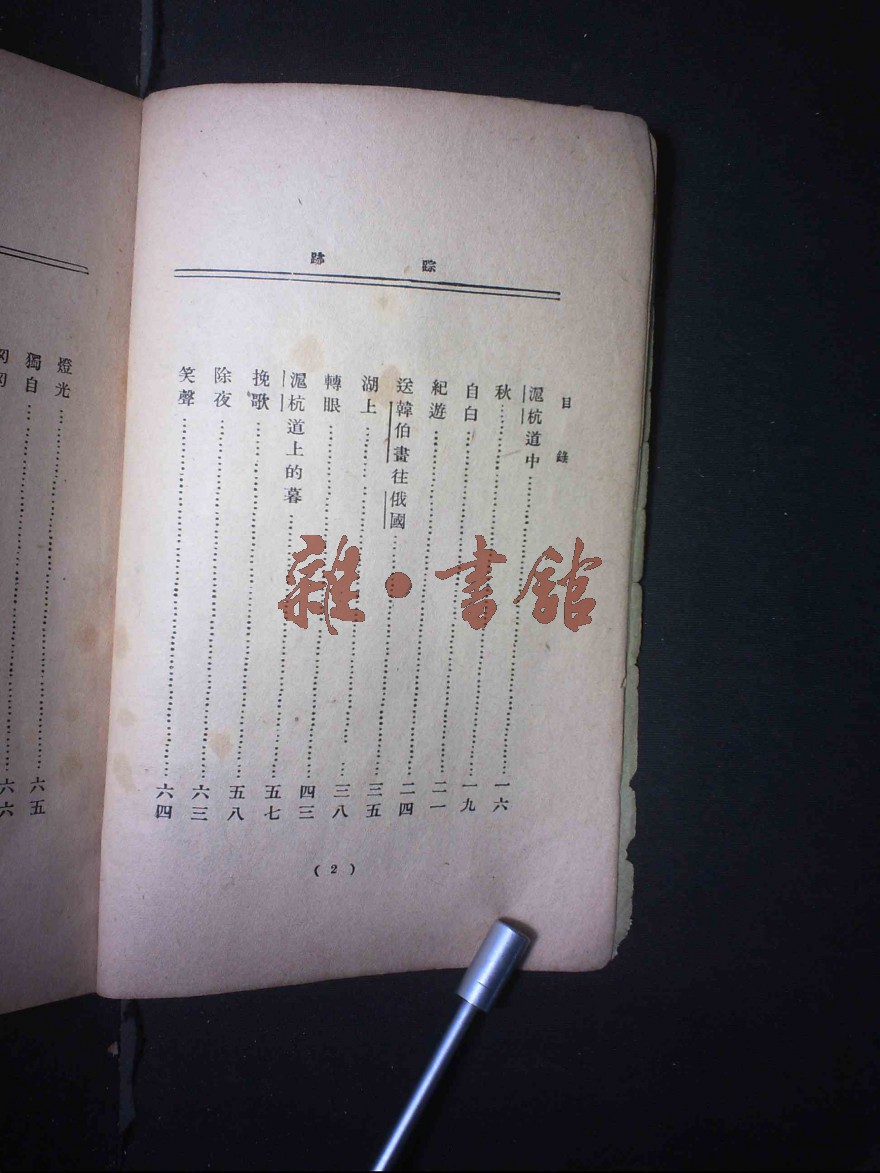 踪跡
目錄
滬杭道中……一六
秋……一九
自白……二一
紀遊……二四
送韓伯畫往俄國……三五
湖上……三八
轉眼……四三
滬杭道上的暮……五七
挽歌……五八
除夜……六三
笑聲……六四
(2)
燈光……六五
獨自……六六
雜·書館